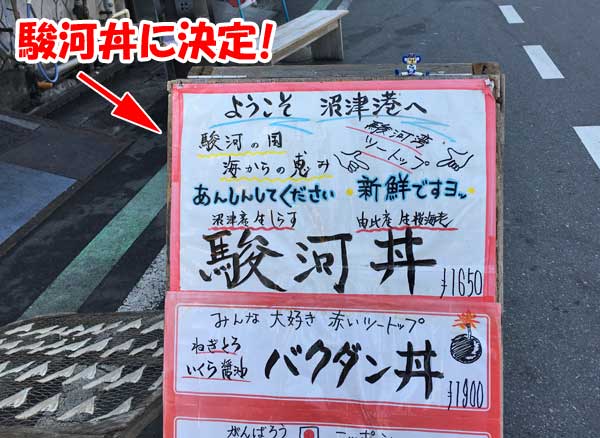 駿河丼に決定!
ようこそ 沼津港へ
駿河の国
海からの恵み
駿河湾
ツートップ
あんしんしてください
新鮮ですヨッ
沼津産生しらす
由比産生桜海老
駿河丼
¥1650
みんな大好き 赤いツートップ
ねぎとろ
いくら醤油
バクダン丼
¥1900
がんばろう
ニッポン